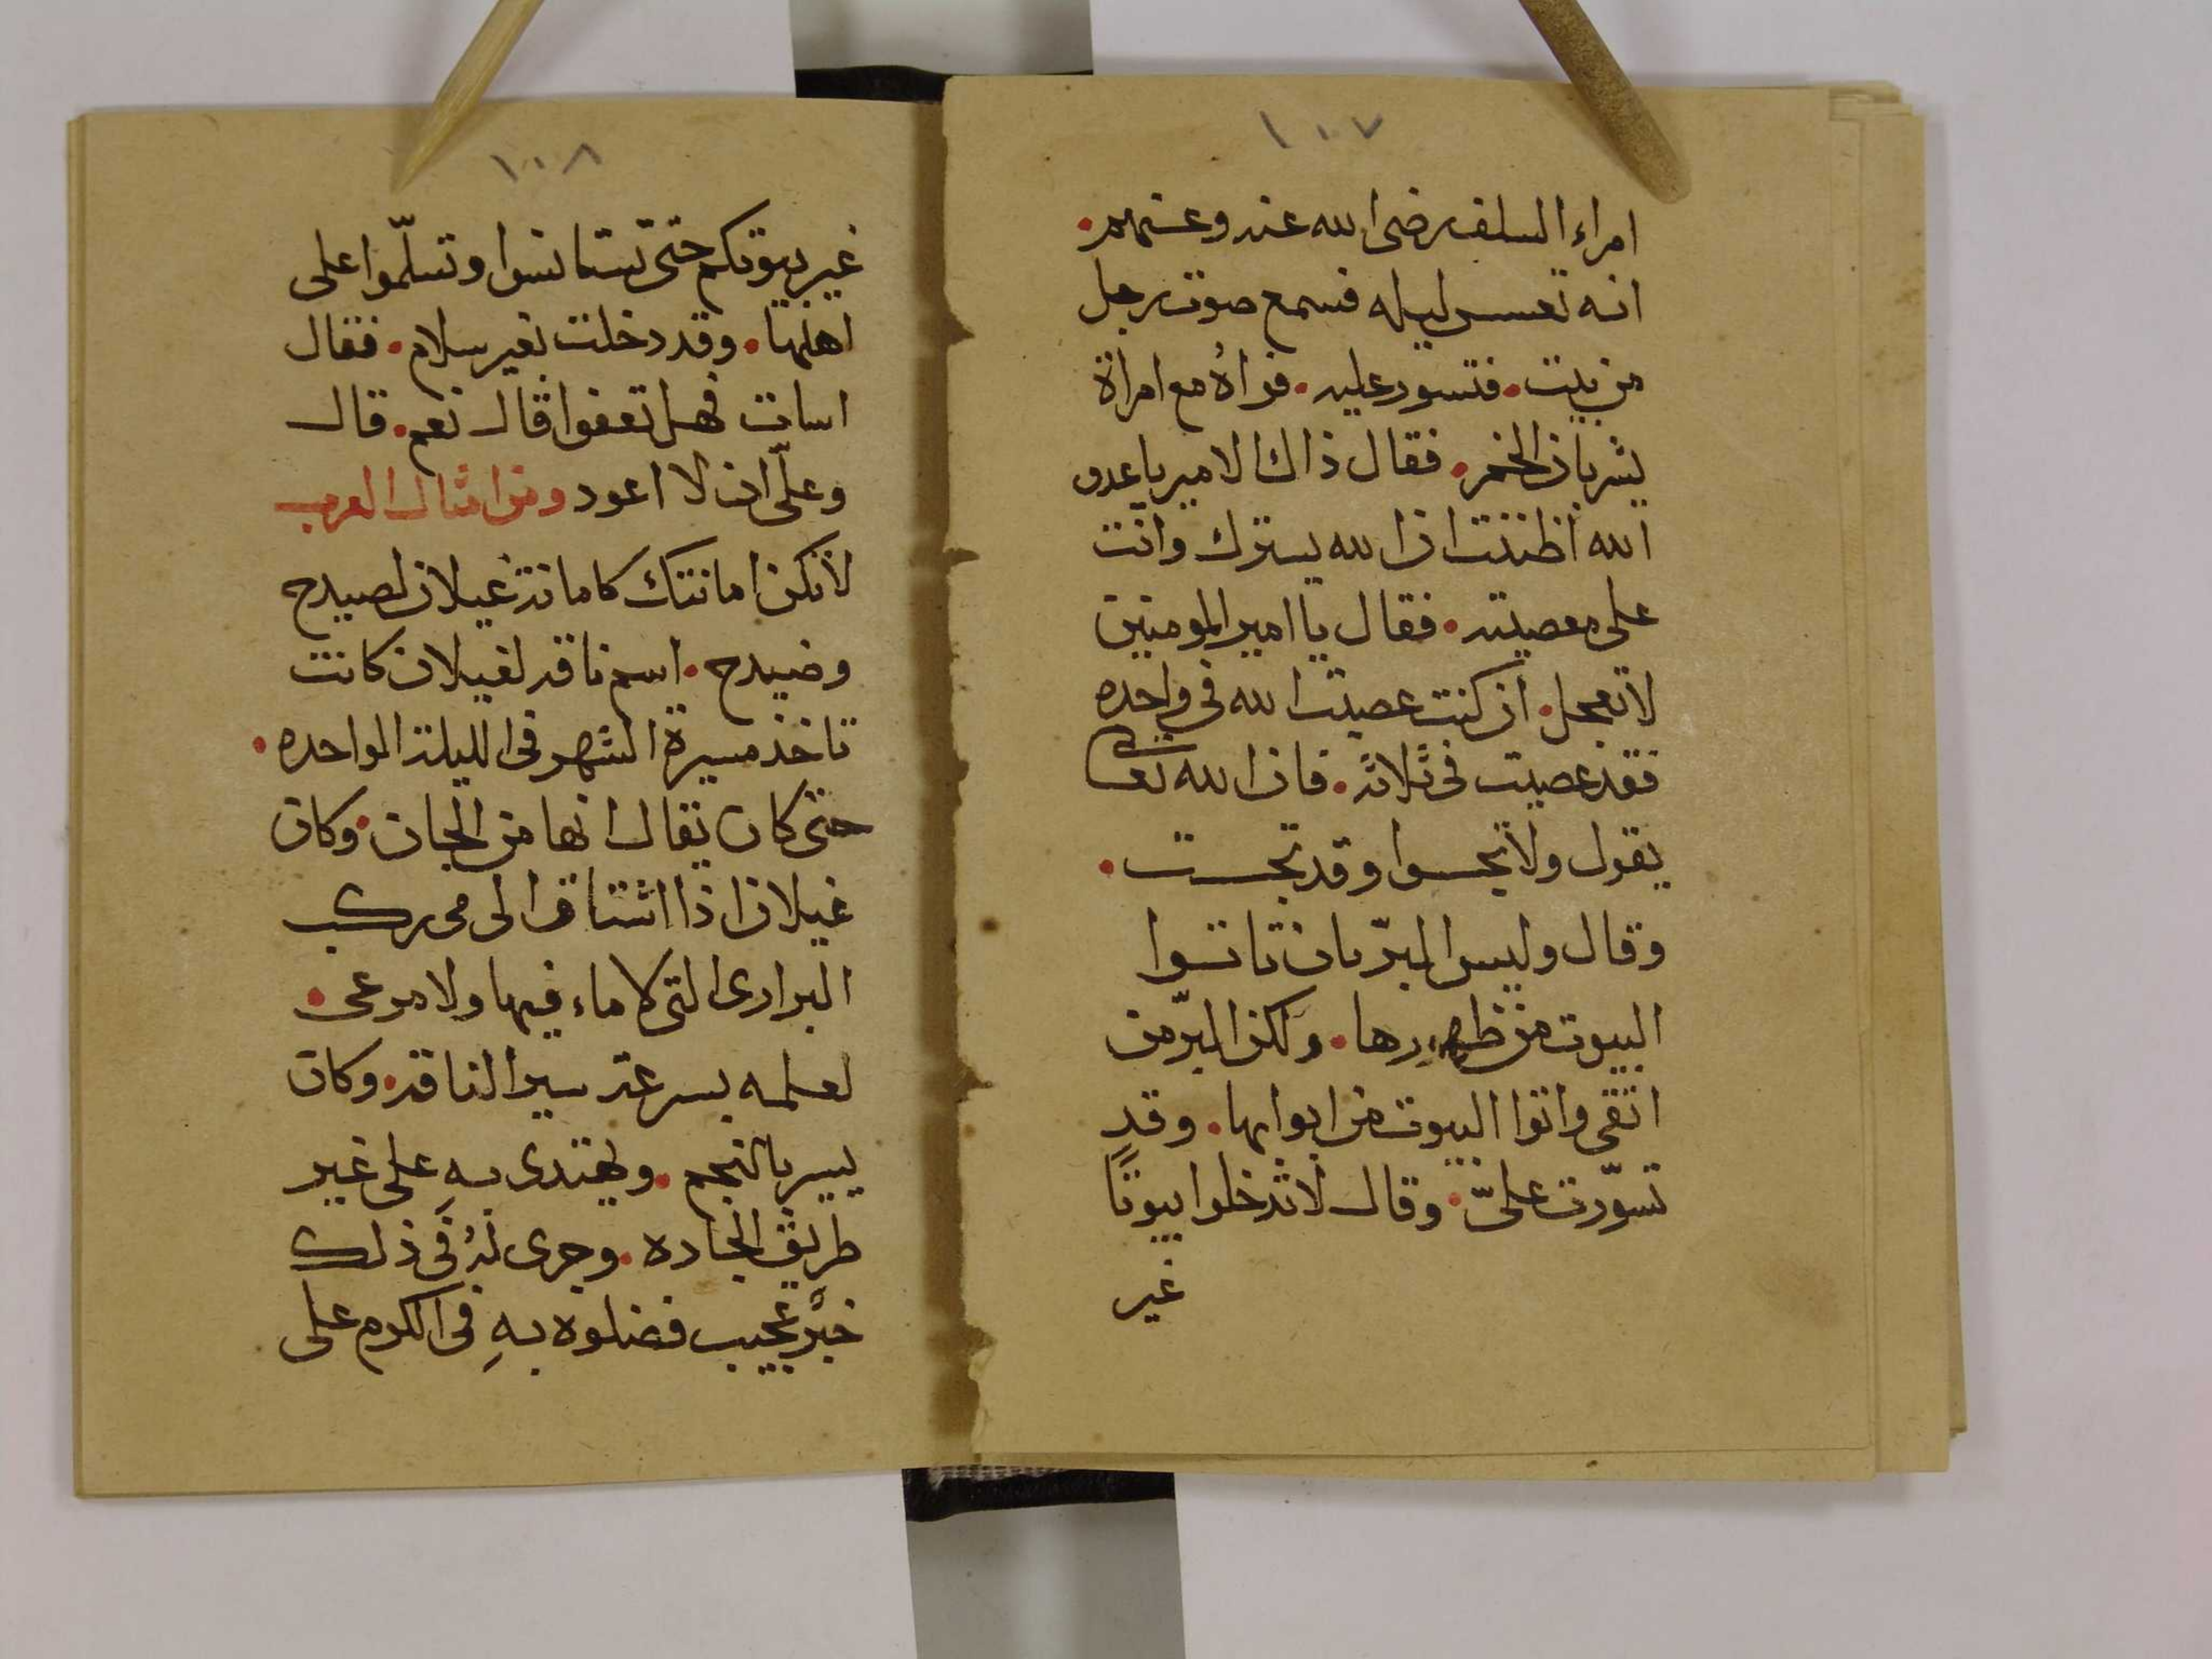 ١٠٧
امراء السلف رضى الله عنه وعنهم.
انه تعسس ليله فسمع صوت رجل
من بيت. فتسور عليه. فراهُ مع امراة
يشربان الخمر. فقال ذاك الامير يا عدو
الله أظننت ان الله يسترك وانت
على معصيته. فقال يا امير المومنين
لا تعجل. ان كنت عصيت الله فى واحده
فقد عصيت فى ثلاثه. فان الله تعالى
يقول ولا تجسسوا وقد تجسست.
وقال وليس البرّ بان تاتوا
البيوت من ظهورها. ولكن البرّ من
اتقى واتوا البيوت من ابوابها. وقد
تسوّرت علىّ. وقال لا تدخلوا بيوتًا
غير
١٠٨
غير بيوتكم حتى تستانسوا وتسلّموا على
اهلها. وقد دخلت بغير سلام. فقال
اسات فهل تعفوا قال نعم. قال
وعلّى ان لا اعود ومن امثال العرب
لا تكن امانتك كامانة غيلان لصيدح
وصيدح. اسم ناقه لغيلان كانت
تاخذ مسيرة الشهر فى الليلة الواحده.
حتى كان يقال انها من الجان. وكان
غيلان اذا اشتاق الى مى ركب
البرارى التى لا ماء فيها ولا مرعى.
لعلمه بسرعة سير الناقه. وكان
يسير بالنجم. ويهتدى بهِ على غير
طريق الجاده. وجرى لهُ فى ذلك
خبرٌ عجيب فضلوه بهِ فى الكرم على